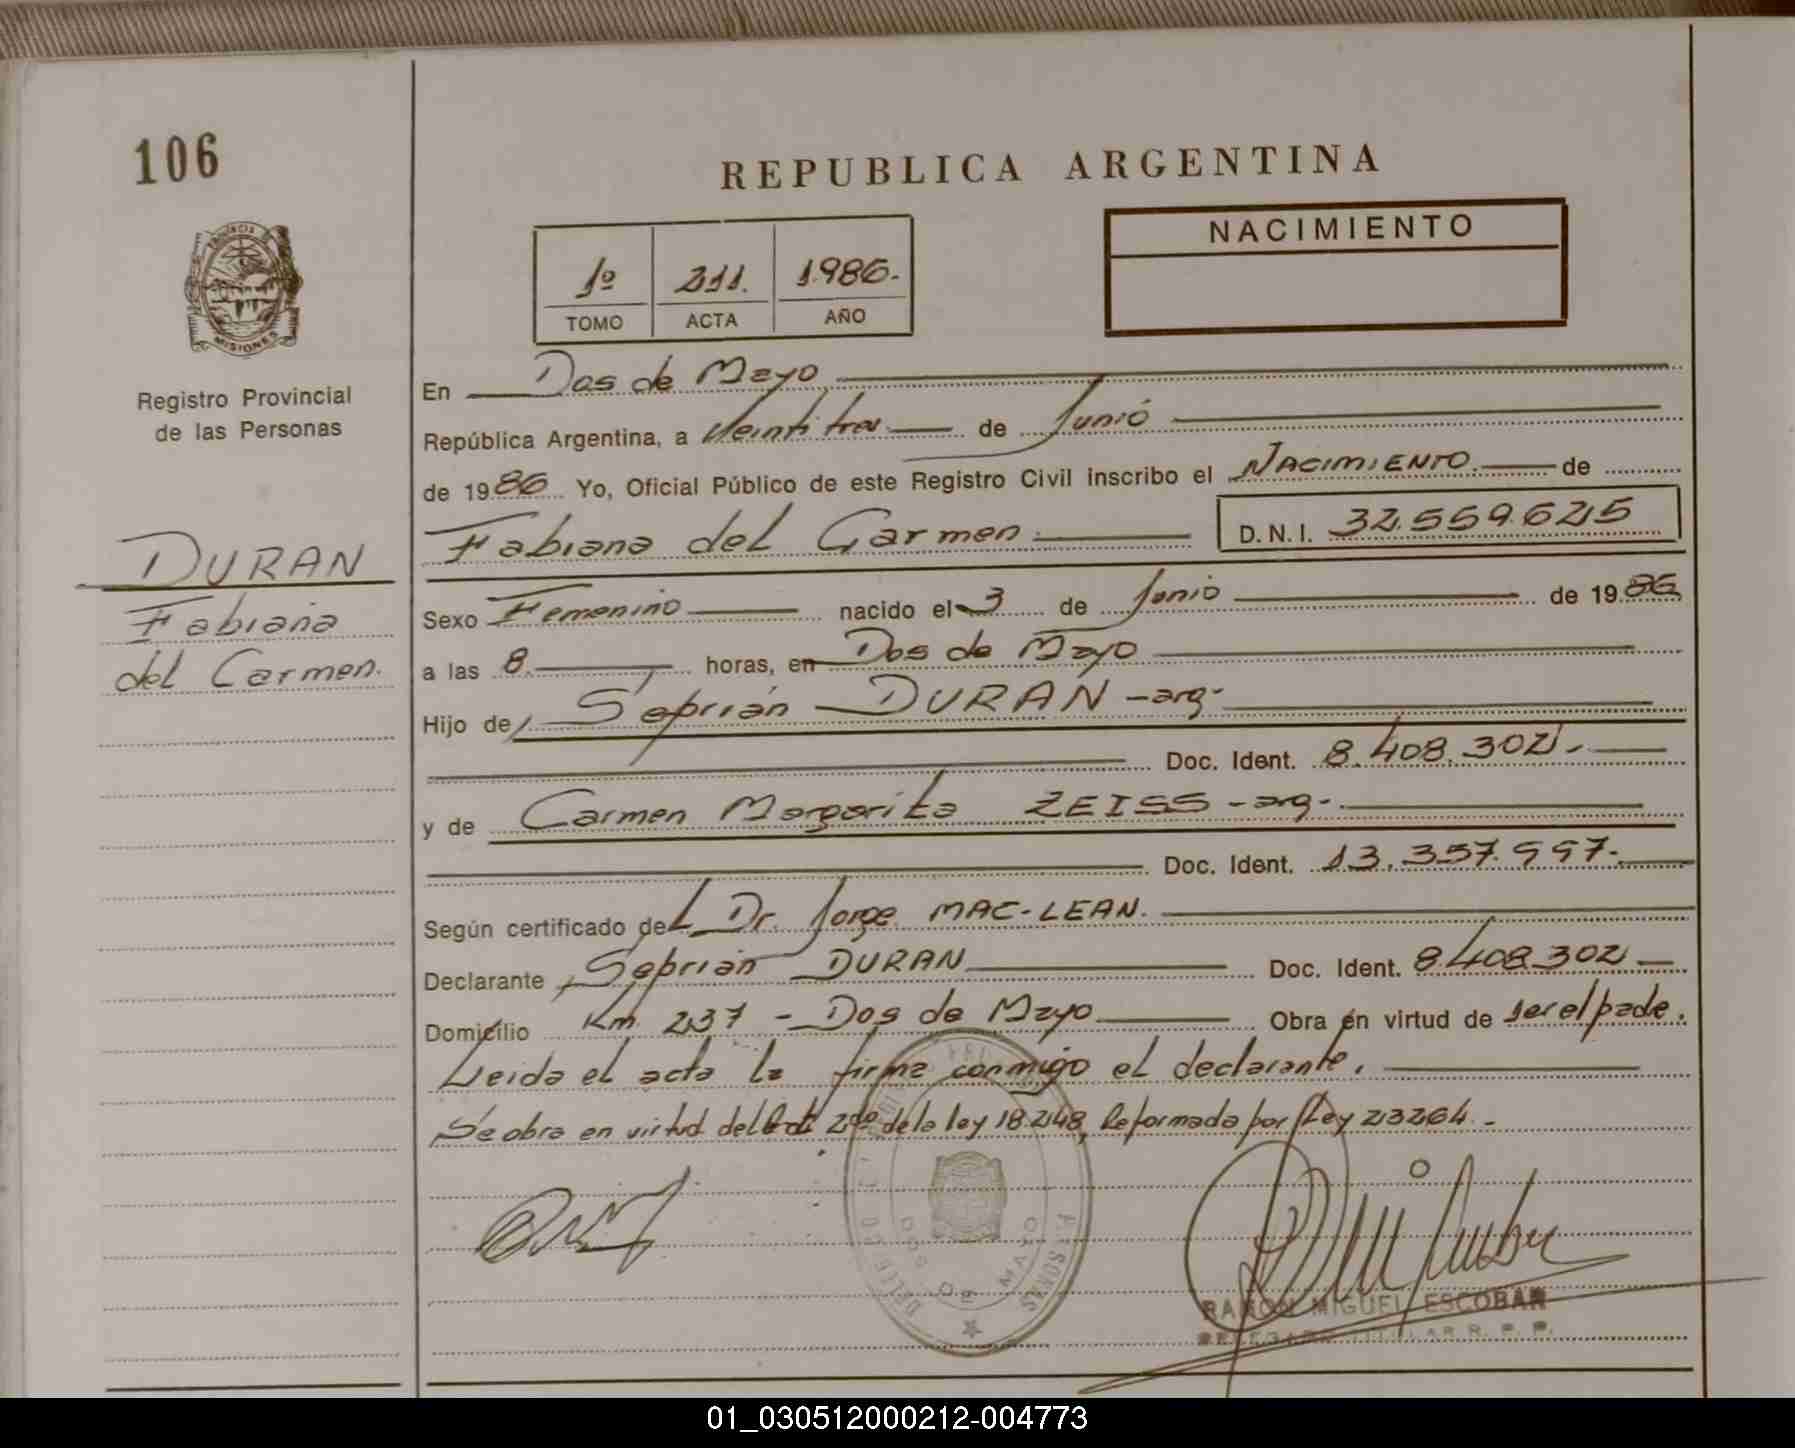 106
REPUBLICA ARGENTINA
NACIMIENTO
1º 211. 1.986.-
TOMO ACTA AÑO
PROVINCIA DE
MISIONES
Registro Provincial
de las Personas
DURAN
Fabiana
del Carmen.
En Dos de Mayo
República Argentina, a Veintitres de Junió
de 1986 Yo, Oficial Público de este Registro Civil inscribo el NACIMIENTO. de
Fabiana del Carmen D.N.I. 32.559.625
Sexo Femenino nacido el 3 de Junio de 1986
a las 8. horas, en Dos de Mayo
Hijo de Séprián DURAN -arg-
Doc. Ident. 8.408.302.-
y de Carmen Margarita ZEISS -arg-.
Doc. Ident. 13.357.997-
Según certificado del Dr. Jorge MAC-LEAN.
Declarante Séprián DURAN Doc. Ident. 8.408.302
Domicilio Km. 237 - Dos de Mayo Obra en virtud de ser el padre.
Leida el acta la firma conmigo el declarante.
Se obra en virtud del 2do de la ley 18.248, Reformada por Ley 23264.-
DOS DE MAYO
RAMON MIGUEL ESCOBAR
DELEGADO TITULAR R. P. P.
01_030512000212-004773